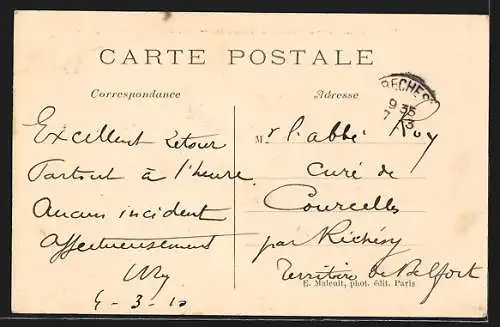 CARTE POSTALE
Correspondance
Adresse
RECHES
9 35
7 3
Excellent retour
Partout à l'heure
Aucun incident
Affectueusement
4-3-10
Mr l'abbé Roy
curé de
Courcelles
par Réchésy
Territoire de Belfort
E. Maleuit, phot. édit. Paris